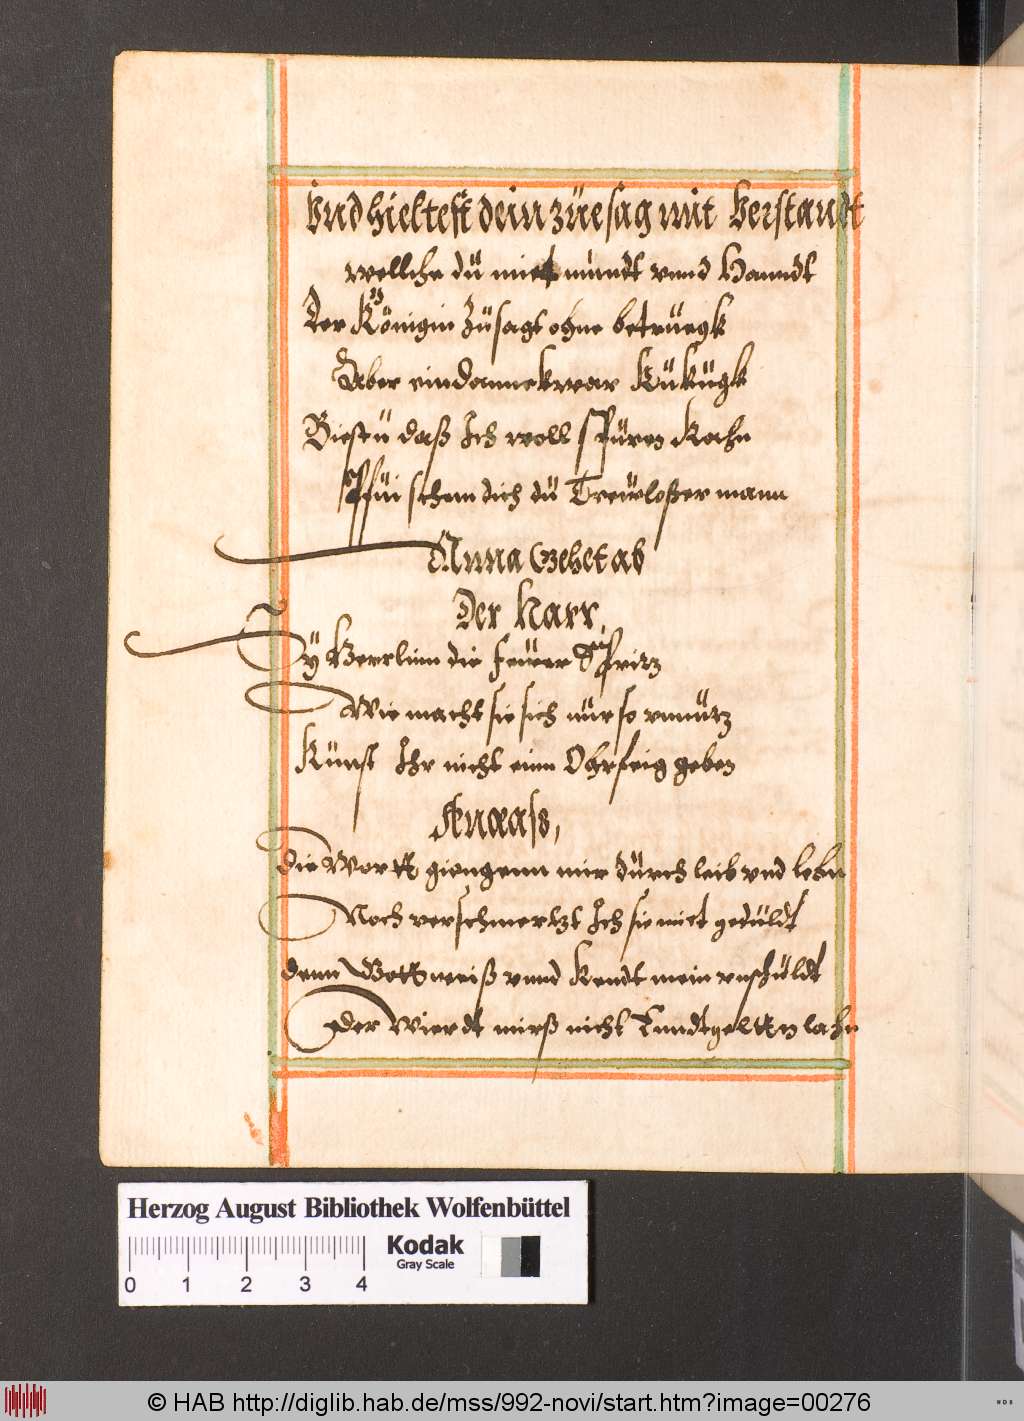 Vnd hieltest dein züesag mit Verstandt
wellche dü miet mündt vnnd Hanndt
Der Königin Züsagt ohne betrüegk
Aber ein Kükügk
Biestü daß Ich woll spüren Kahn
Pfüi schem dich dü Treüloßer mann
Anna Gehet ab
Der Narr,
Sÿ die feüer Spritz
Wie macht sie sich nür so vnnütz
Künst Ihr nicht einn Ohrfeig geben
Aenaass,
die Wortt giengenn mir dürch leib vnd lebn
Noch verschmertzt Ich sie miet gedüldt
denn Gott weiß vnnd Kendt mein vnschüldt
Der Wierdt mirß nicht Enndtgeltten lahn
Herzog August Bibliothek Wolfenbüttel
Kodak
Gray Scale
0 1 2 3 4
© HAB http://diglib.hab.de/mss/992-novi/start.htm?image=00276